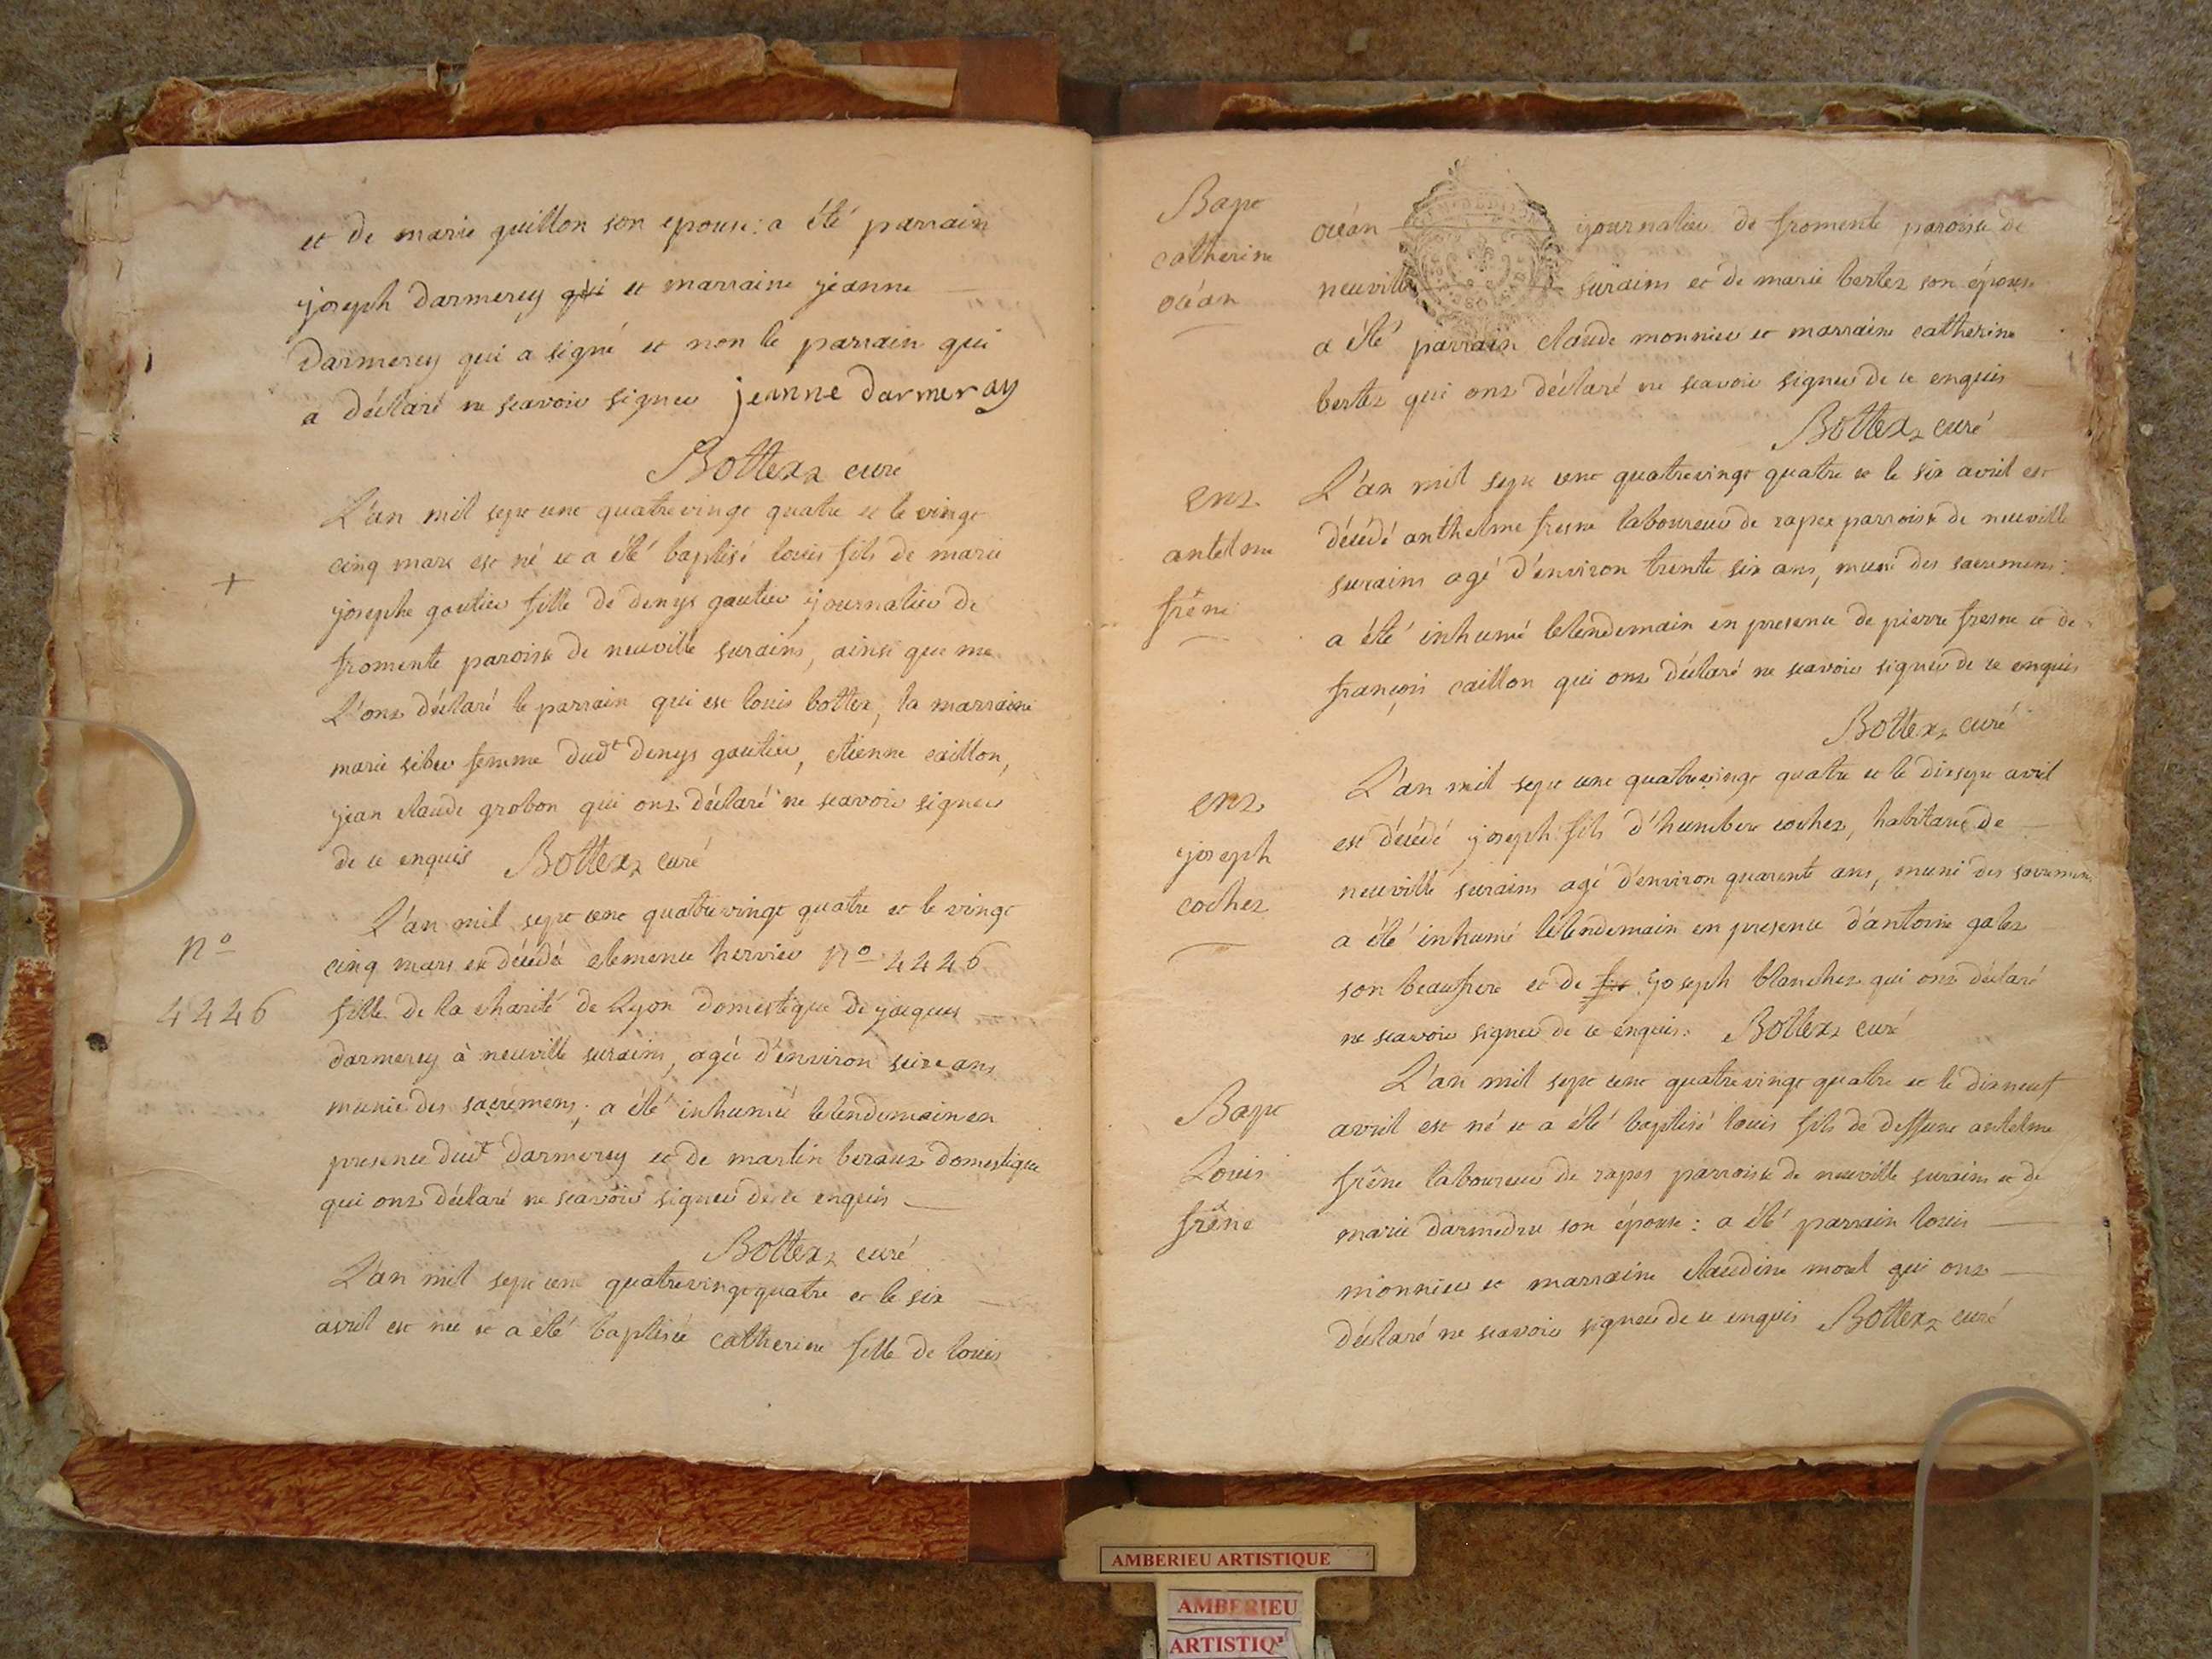 et de marie guillon son epouse: a été parrain
joseph Darmerey qui et marraine jeanne
Darmerey qui a signé et non le parrain qui
a déclaré ne scavoir signer jeanne Darmeray
Bottex curé
L'an mil sept cent quatrevingt quatre et le vingt
cinq mars est né et a été baptisé louis fils de marie
josephe gautier fille de denys gautier journalier de
fromente paroisse de neuville surains, ainsi que me
L'ont déclaré le parrain qui est louis bottex, la marraine
marie siber femme dudt denys gautier, etienne caillon,
jean claude grobon qui ont déclaré ne scavoir signer
de ce enquis Bottex curé
n°
4446
L'an mil sept cent quatrevingt quatre et le vingt
cinq mars est décédé clemence hervier n° 4446
fille de la charité de Lyon domestique de jacques
darmerey à neuville surains, agée d'environ seize ans
munie des sacremens; a été inhumée lelendemain en
presence dudt Darmerey et de martin beraux domestique
qui ont déclaré ne scavoir signer de ce enquis
Bottex curé
L'an mil sept cent quatrevingt quatre et le six
avril est née et a été baptisée catherine fille de louis
Bapt
catherine
océan
océan journalier de fromente paroisse de
neuville surains et de marie bertet son épouse
a été parrain claude monnier et marraine catherine
bertet qui ont déclaré ne scavoir signer de ce enquis
Bottex curé
ent
antelme
frêne
L'an mil sept cent quatrevingt quatre et le six avril est
décédé anthelme fresne laboureur de rapex parroisse de neuville
surains agé d'environ trente six ans, muni des sacremens:
a été inhumé lelendemain en presence de pierre fresne et de
françois caillon qui ont déclaré ne scavoir signer de ce enquis
Bottex curé
ent
joseph
cochet
L'an mil sept cent quatrevingt quatre et le dixsept avril
est décédé joseph fils d'humbert cochet, habitant de
neuville surains agé d'environ quarente ans, muni des sacremens
a été inhumé lelendemain en presence d'antoine galet
son beaufrere et de joseph blanchet qui ont déclaré
ne scavoir signer de ce enquis: Bottex curé
Bapt
Louis
frêne
L'an mil sept cent quatrevingt quatre et le dixneuf
avril est né et a été baptisé louis fils de deffunt antelme
frêne laboureur de rapes parroisse de neuville surains et de
marie darmedru son épouse: a été parrain louis
monnier et marraine claudine morel qui ont
déclaré ne scavoir signer de ce enquis Bottex curé
AMBERIEU ARTISTIQUE
AMBERIEU
ARTISTIQ